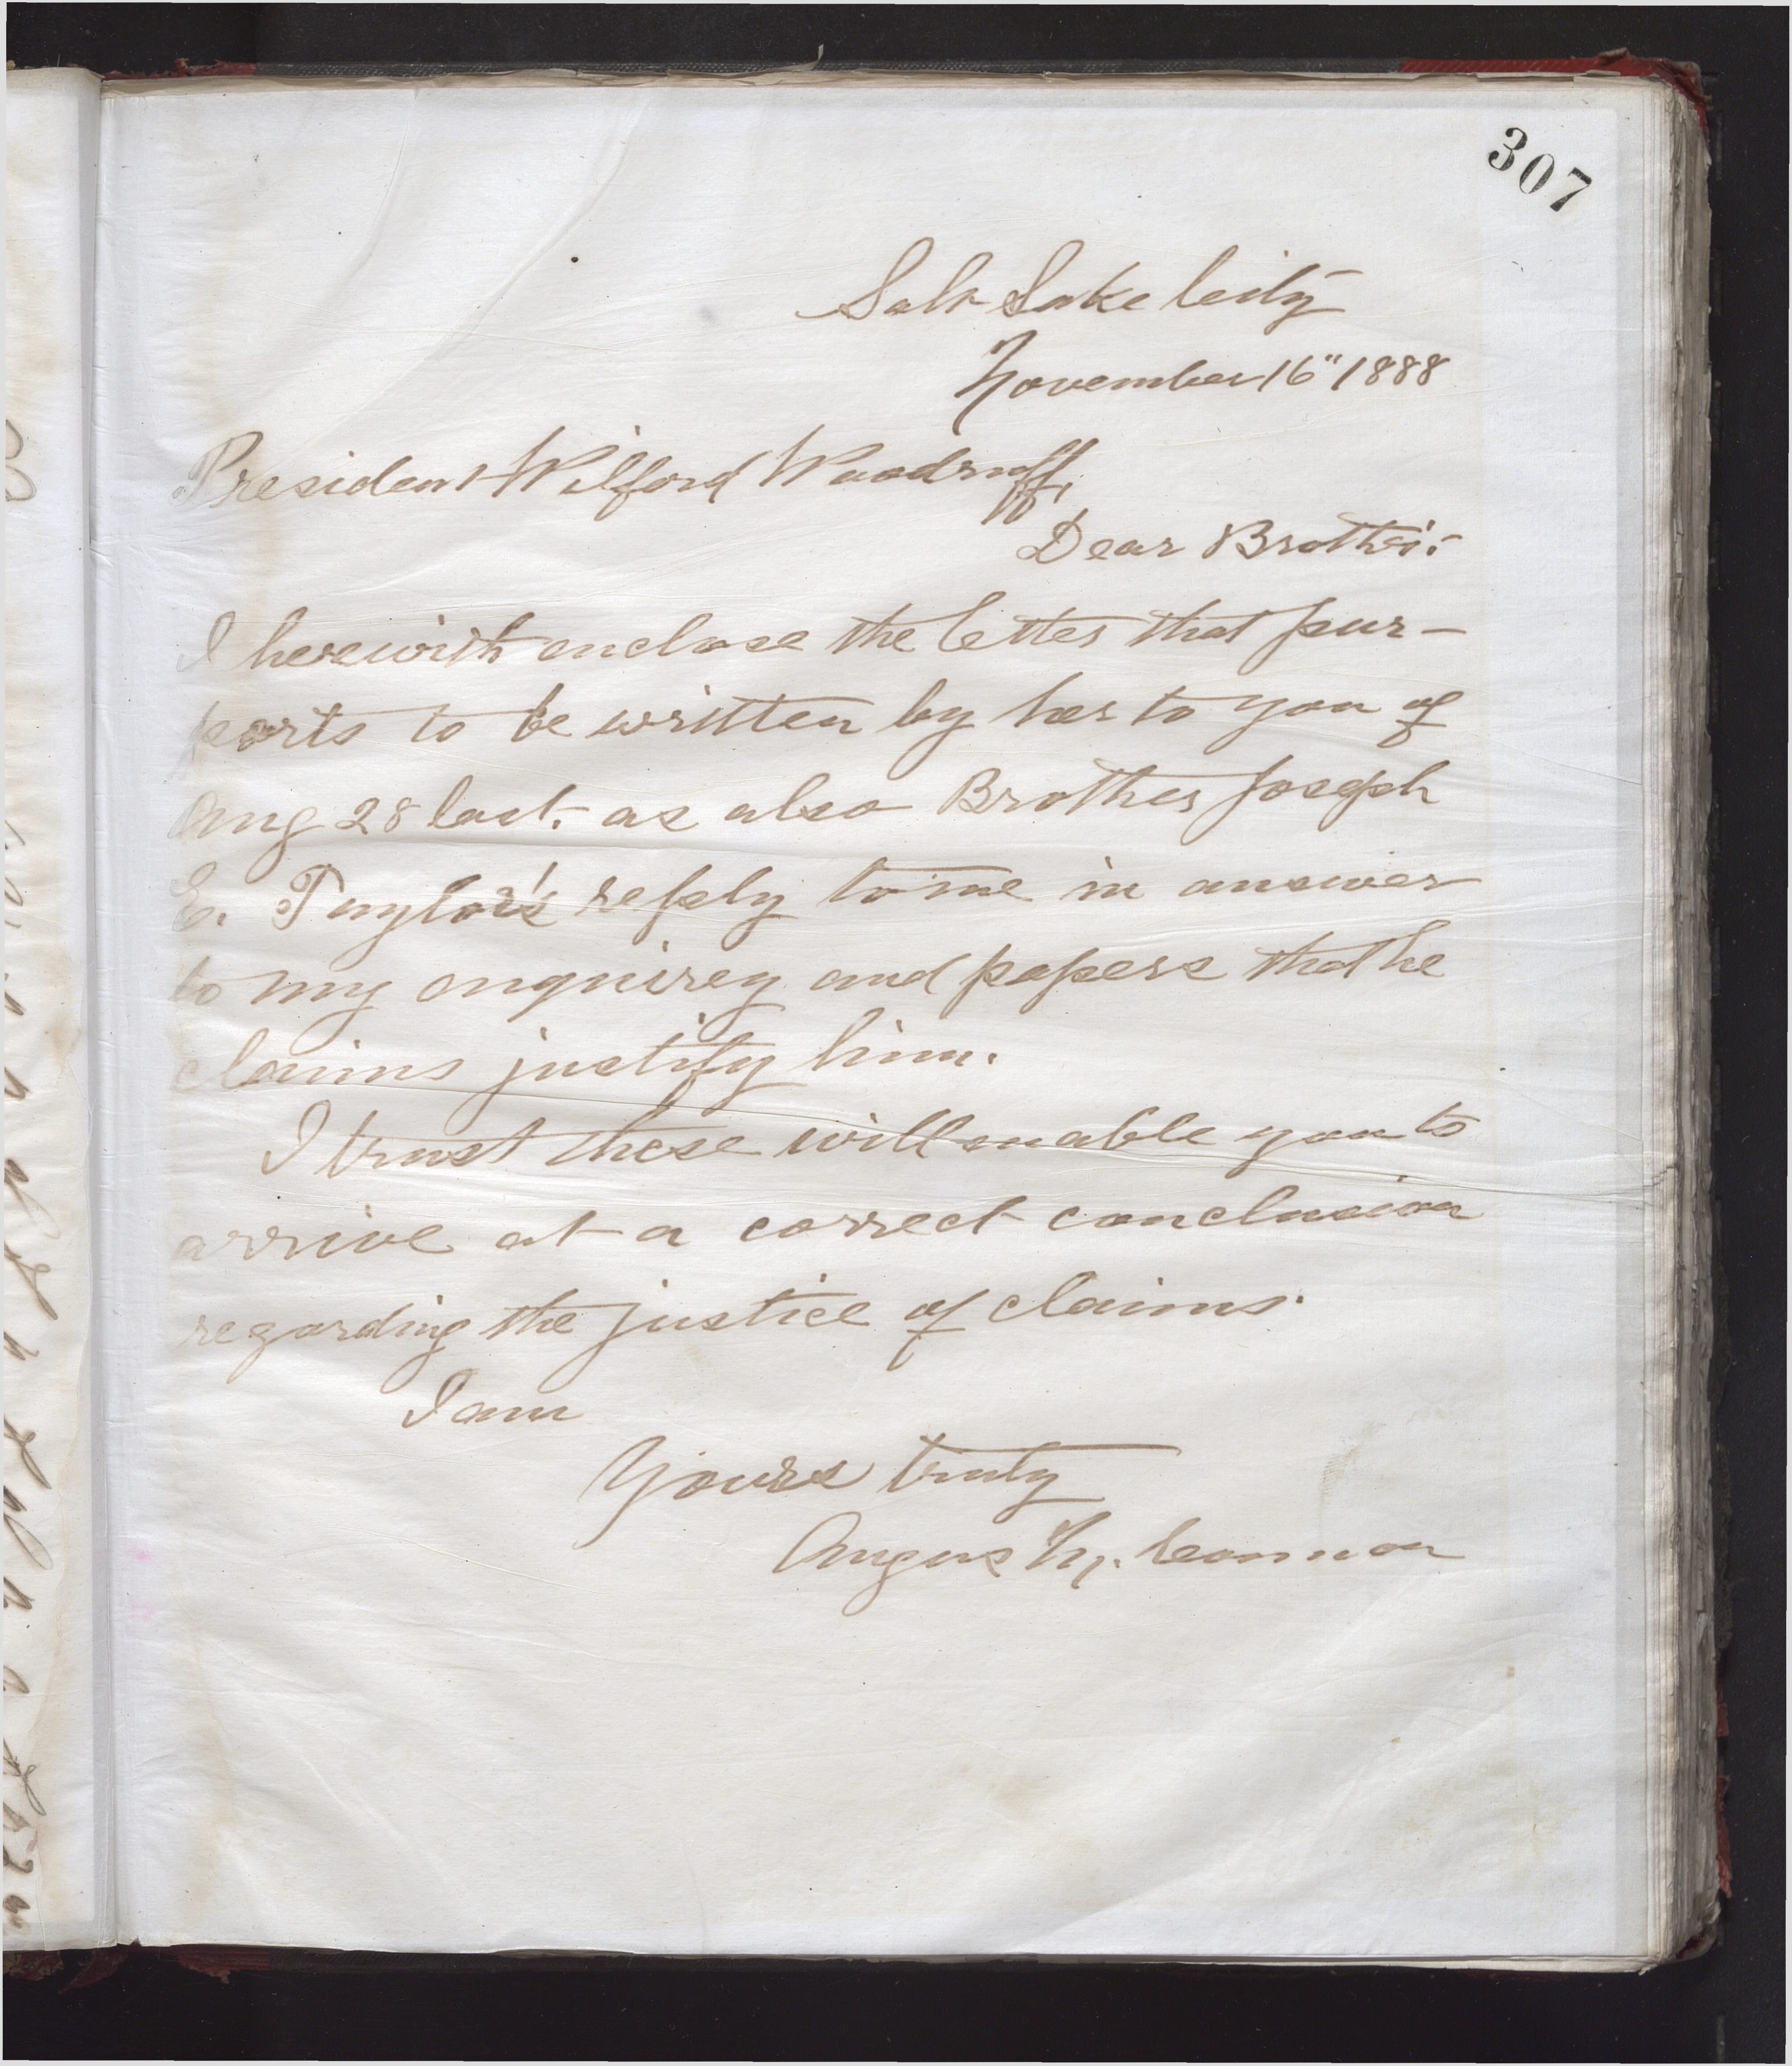 307
Salt Lake City
November 16" 1888
President Wilford Woodruff,
Dear Brother:-
I herewith enclose the letter that pur-
ports to be written by her to you of
Aug 28 last. as also Brother Joseph
E. Taylor's reply to me in answer
to my enquirey and papers that he
claims justify him.
I trust these will enable you to
arrive at a correct conclusion
regarding the justice of claims.
I am
Yours truly
Angus M. Cannon